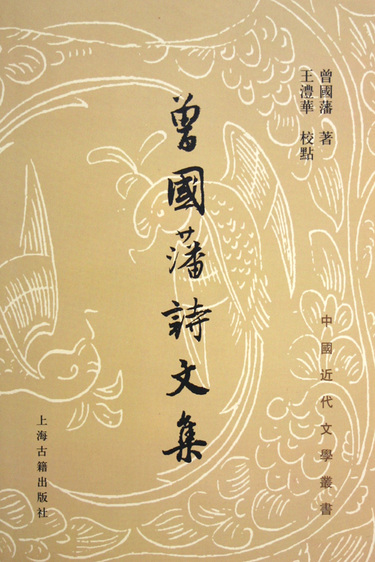 曾國藩 著
王澧華 校點
曾國藩詩文集
中國近代文學叢書
上海古籍出版社